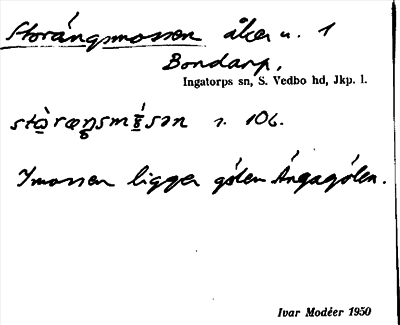 Storängsmossen åker n. 1
Bondarp,
Ingatorps sn, S. Vedbo hd, Jkp. l.
s. 106.
I mossen ligger gölen Ängagölen.
Ivar Modéer 1950